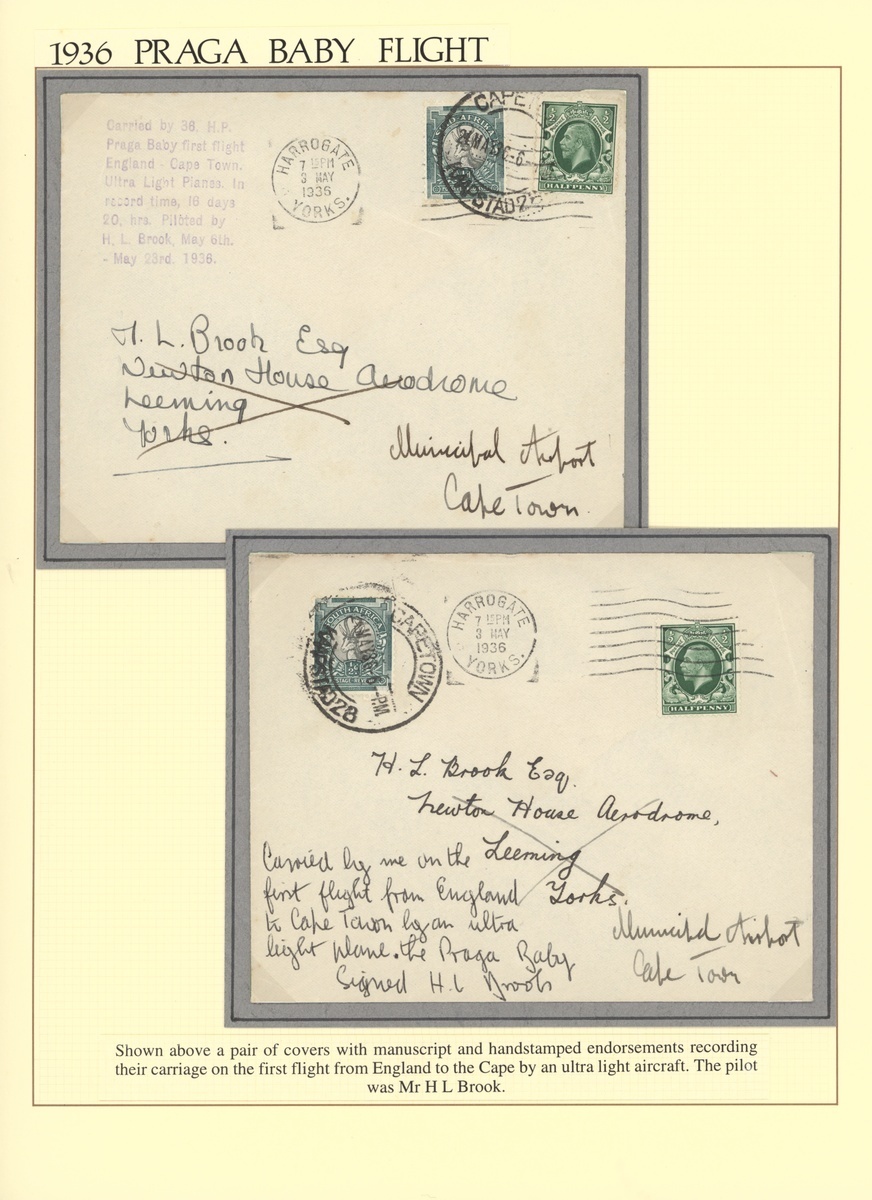 1936 PRAGA BABY FLIGHT
Carried by 36, H.P.
Praga Baby first flight
England - Cape Town.
Ultra Light Planes. In
record time, 16 days
20, hrs. Piloted by
H. L. Brook, May 6th.
- May 23rd. 1936.
HARROGATE
7 15PM
3 MAY
1936
YORKS.
CAPE
HALFPENNY
H. L. Brook Esq
Newton House Aerodrome
Leeming
Yorks.
Municipal Airport
Cape Town.
SOUTH AFRICA
CAPETOWN
HARROGATE
7 15PM
3 MAY
1936
YORKS.
HALFPENNY
H. L. Brook Esq.
Newton House Aerodrome,
Leeming
Yorks.
Carried by me on the
first flight from England
to Cape Town by an ultra
light plane. the Praga Baby
Signed H.L Brook
Municipal Airport
Cape Town
Shown above a pair of covers with manuscript and handstamped endorsements recording
their carriage on the first flight from England to the Cape by an ultra light aircraft. The pilot
was Mr H L Brook.